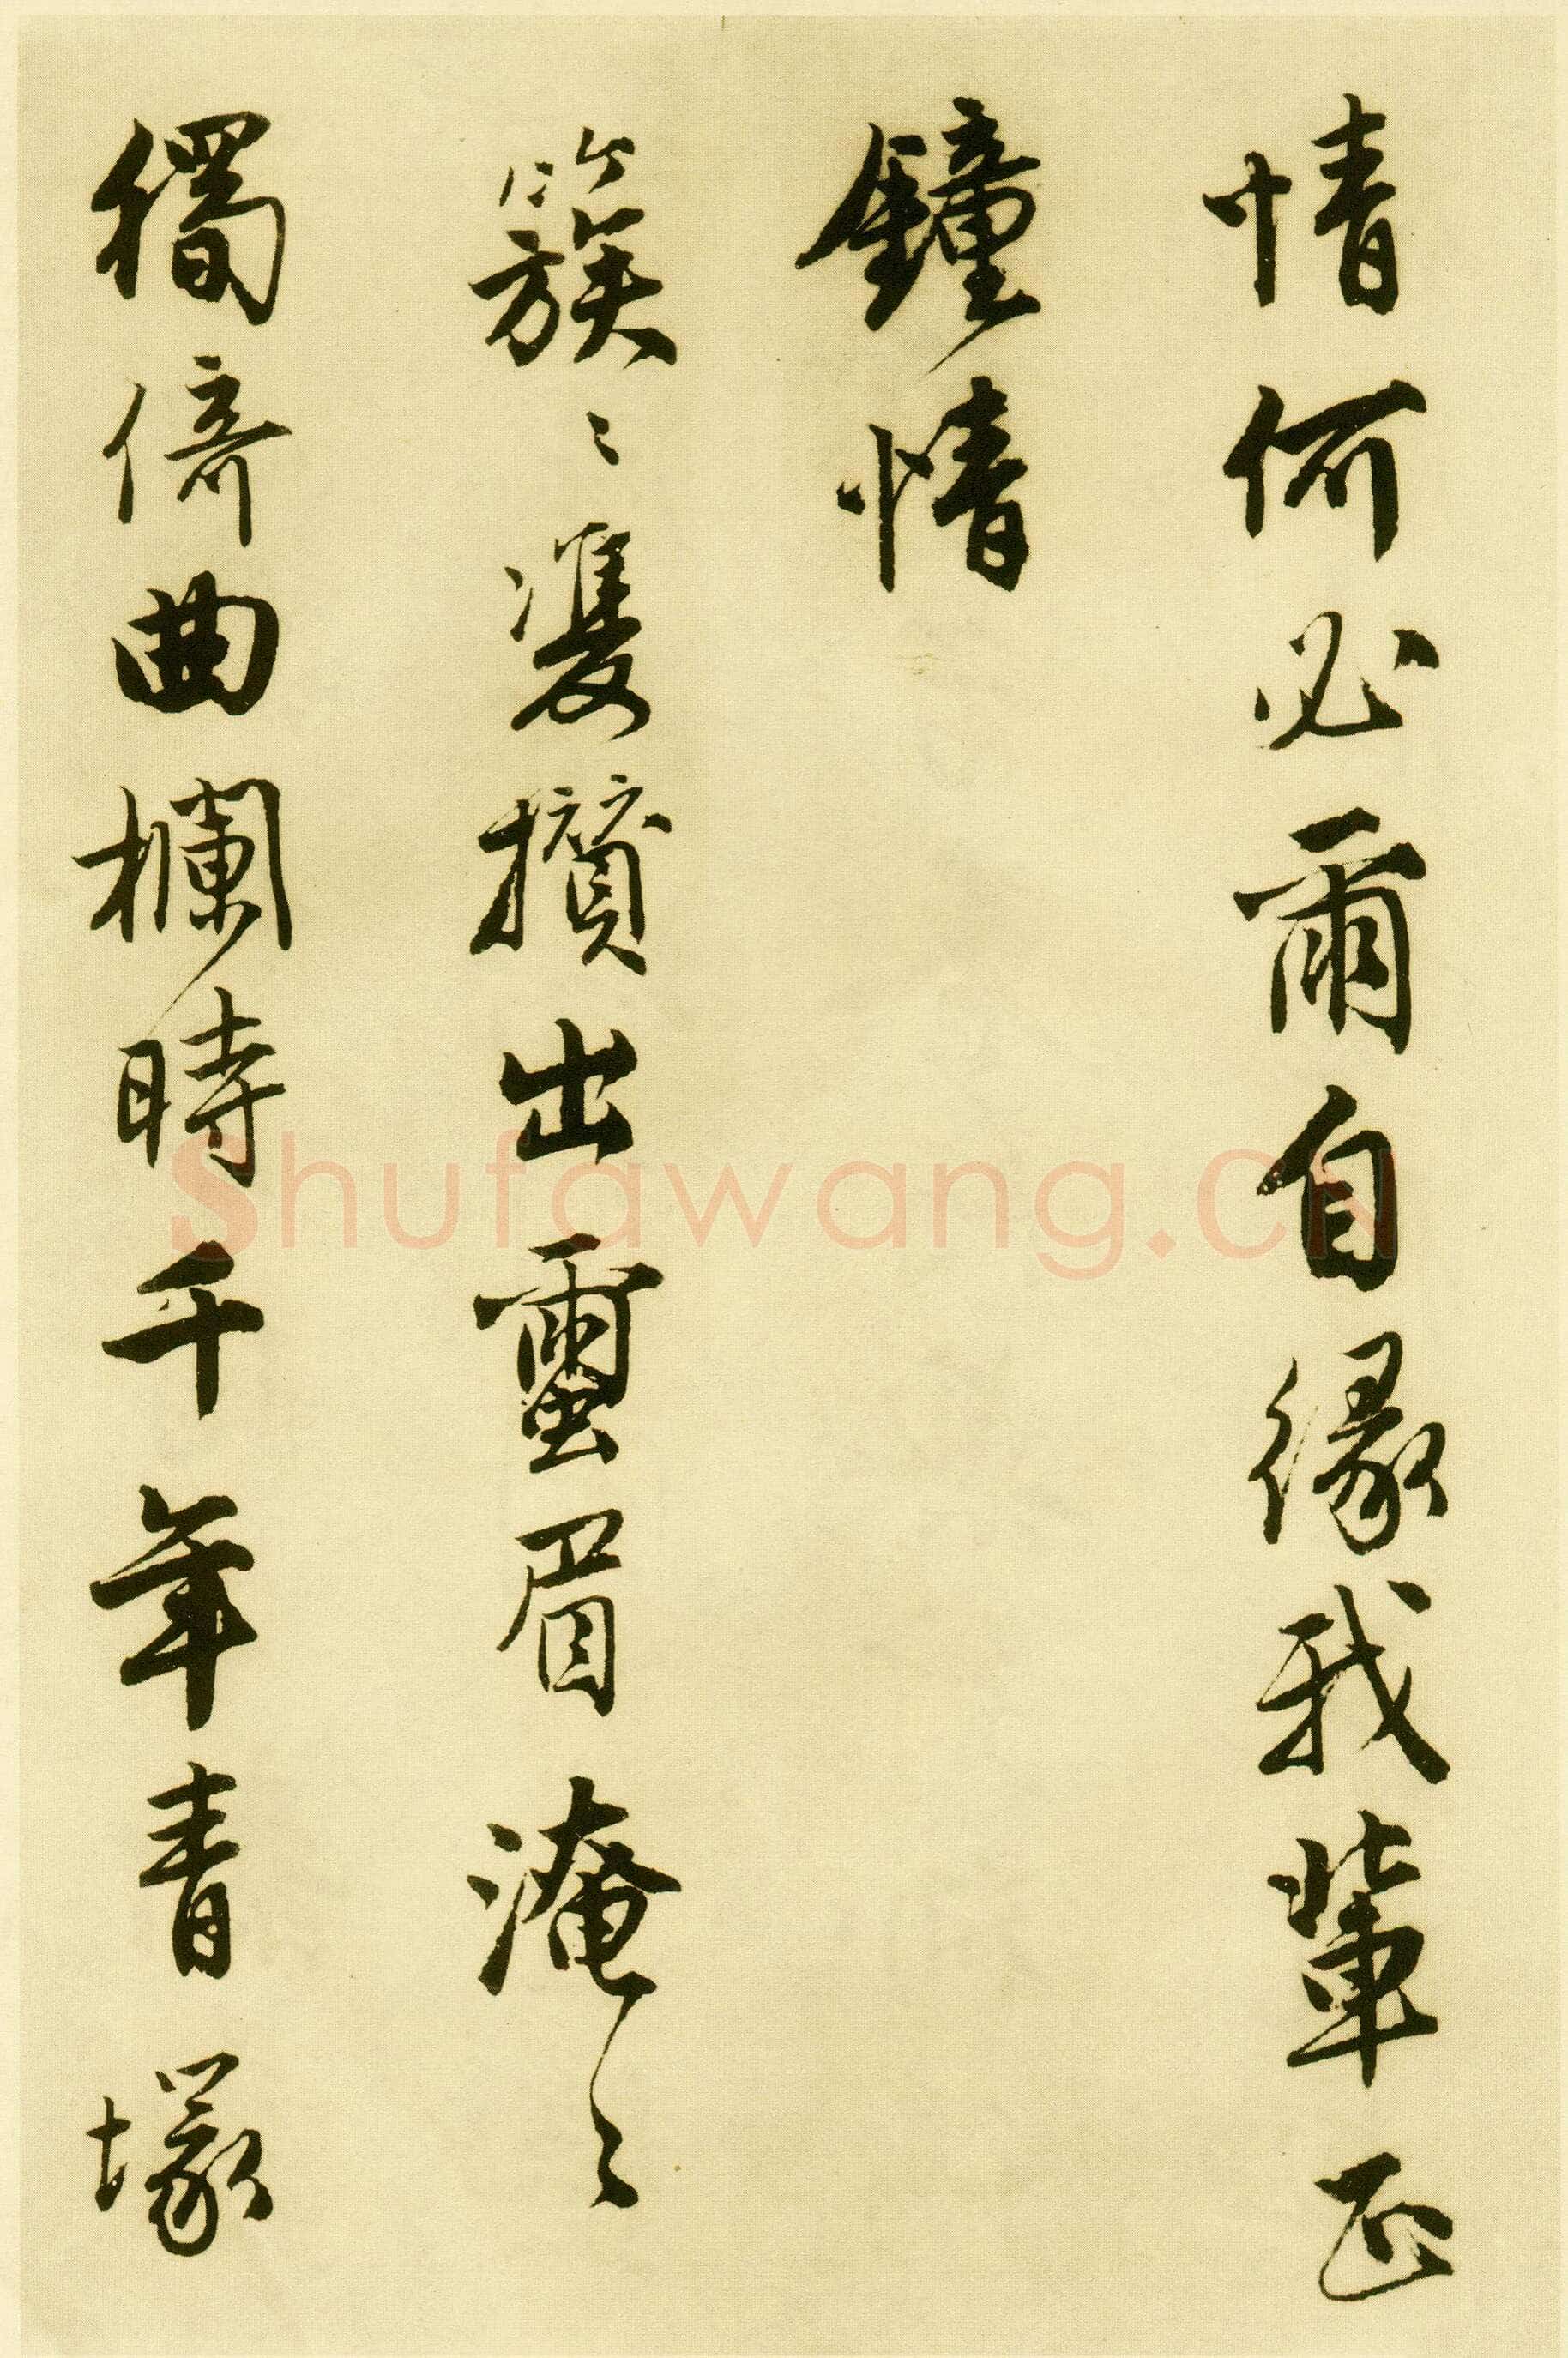 情何必爾自緣我輩正
鐘情
簇々雙攢出蠒眉淹々
獨倚曲欄時千年青塚
Shufawang.CN